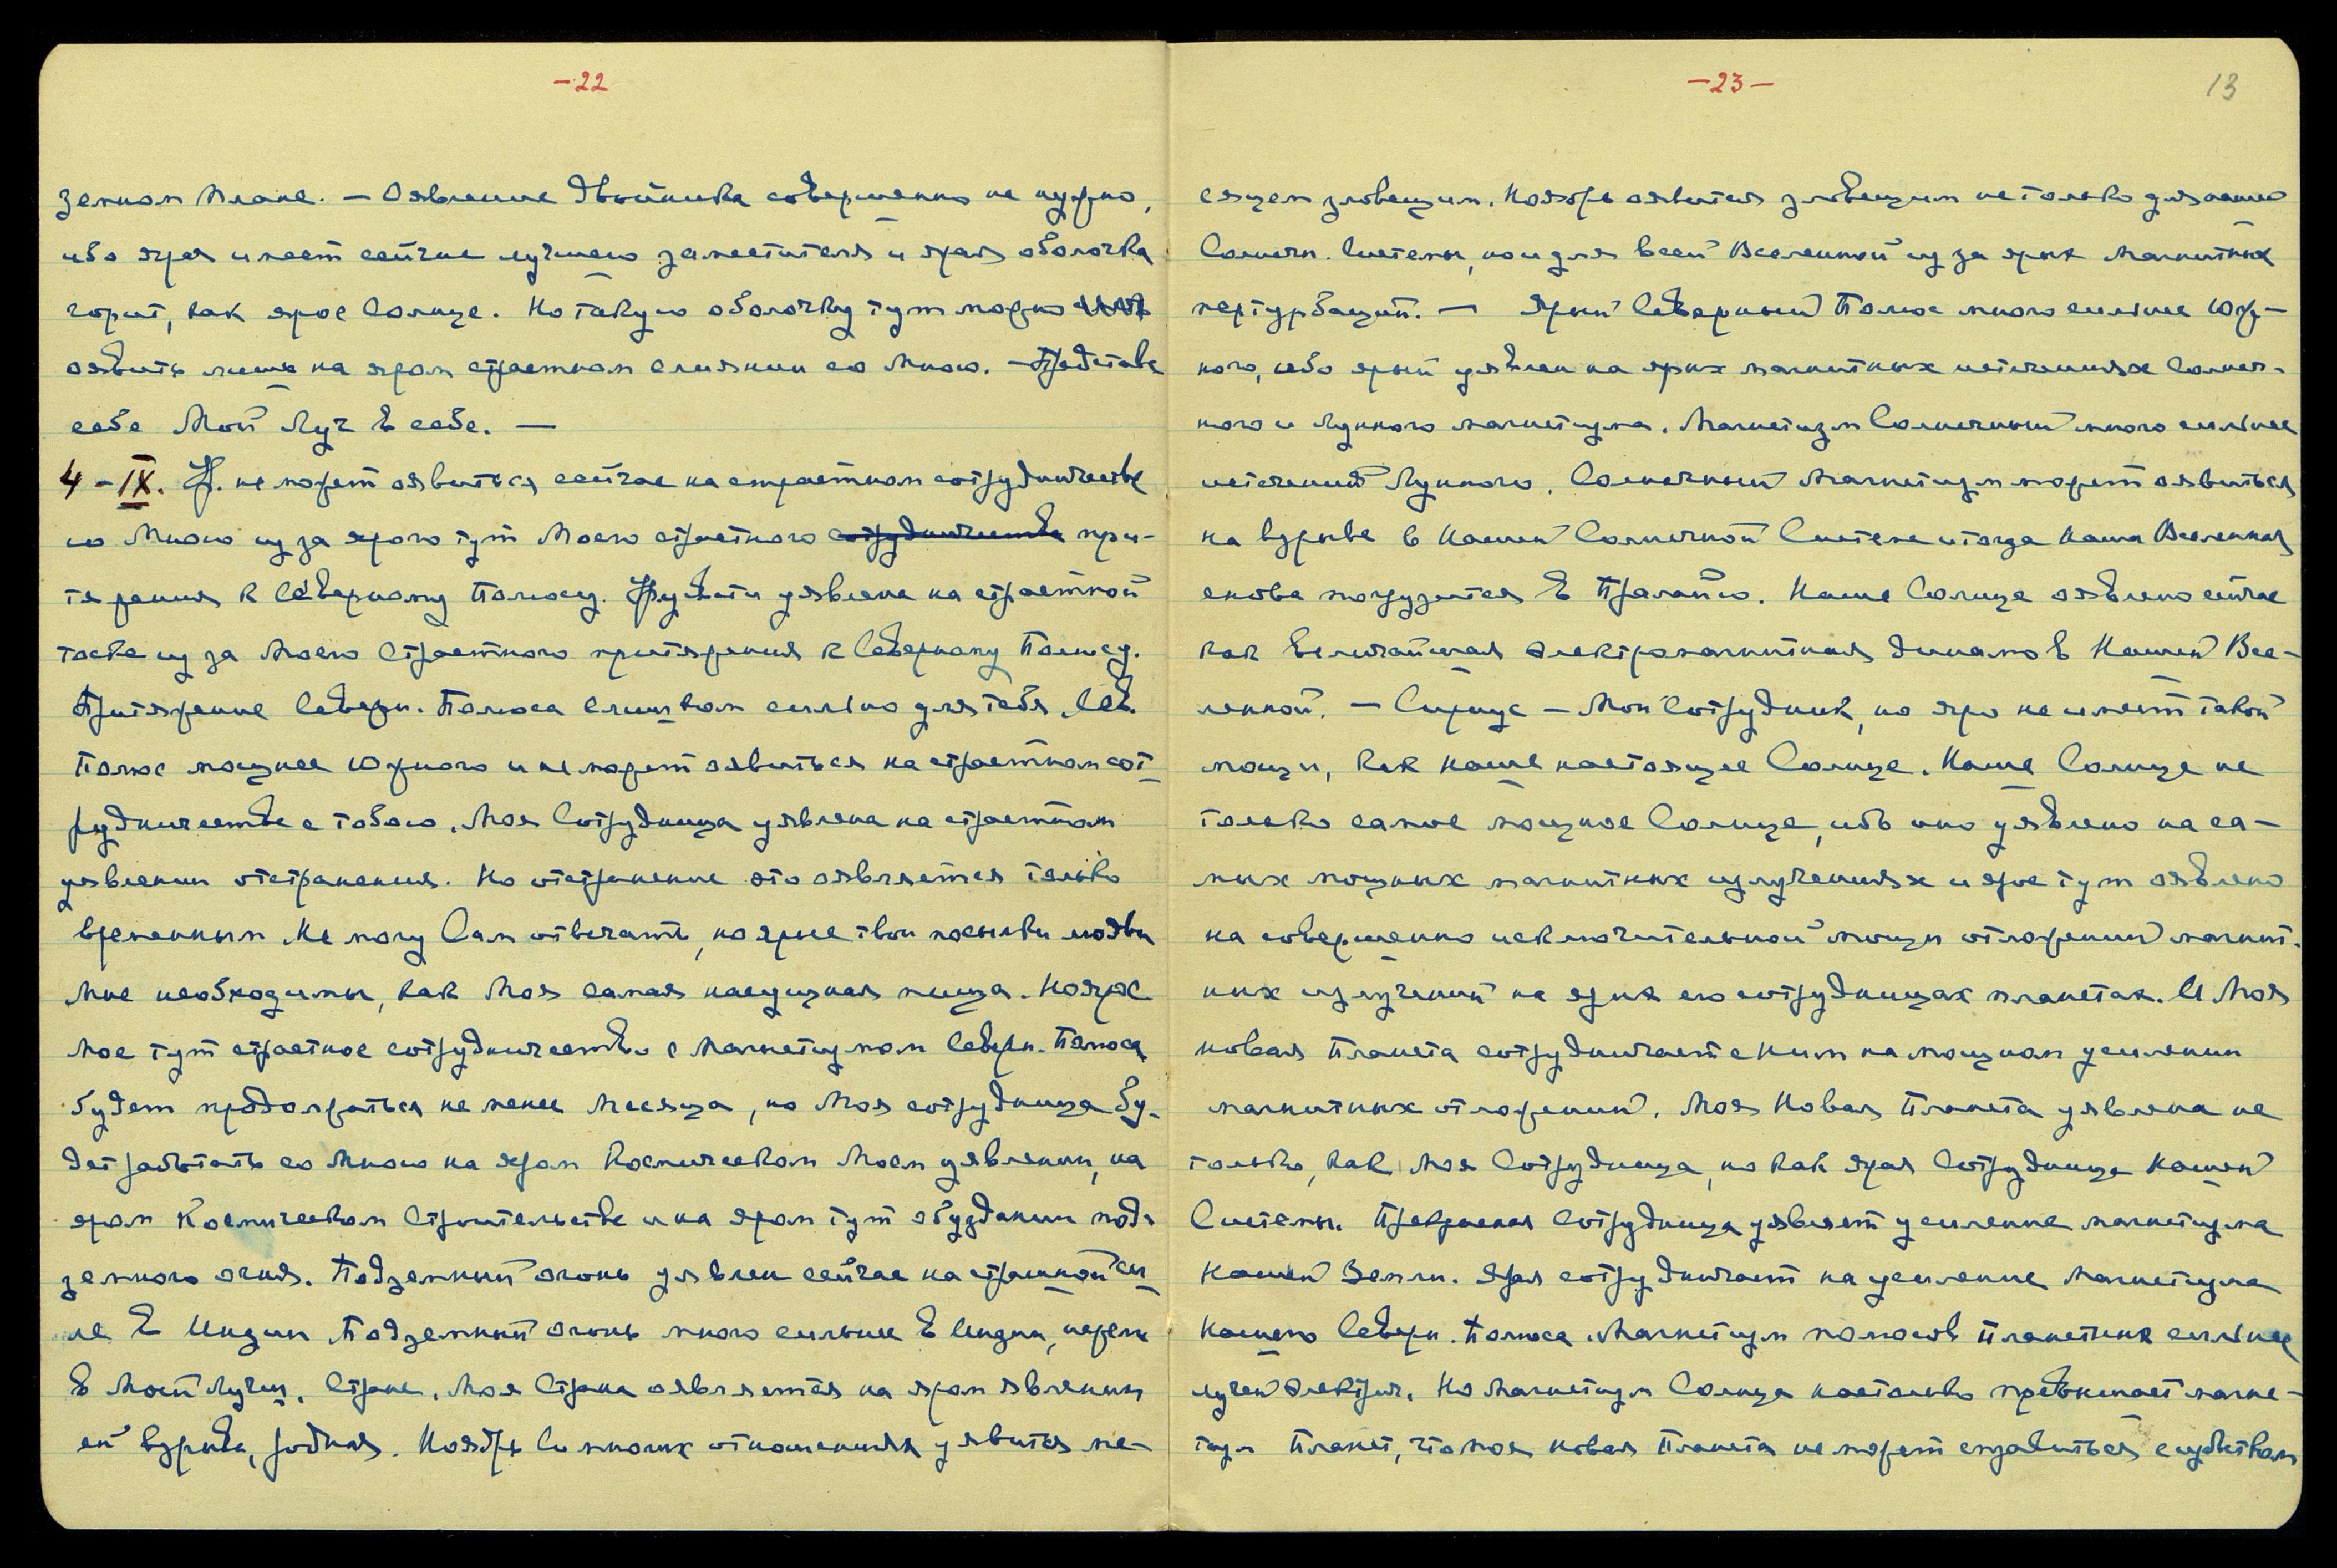 -22
земном плане. — Оявление двойника совершенно не нужно,
ибо ярая имеет сейчас лучшего заместителя и ярая оболочка
горит, как ярое Солнце. Но такую оболочку тут можно
оявить лишь на яром страстном слиянии со Мною. — Представь
себе Мой Луч в себе. —
4-IX. Ур. не может оявиться сейчас на страстном сотрудничестве
со Мною из за ярого тут Моего страстного сотрудничества при-
тяжения к Северному Полюсу. Урусвати уявлена на страстной
тоске из за Моего Страстного притяжения к Северному Полюсу.
Притяжение Северн. Полюса слишком сильно для тебя. Сев.
Полюс мощнее Южного и не может оявиться на страстном сот-
рудничестве с тобою. Моя Сотрудница уявлена на страстном
уявлении отстранения. Но отстранение это оявляется только
временным. Не могу Сам отвечать, но ярые твои посылки любви
Мне необходимы, как Моя самая насущная пища. Но ярое
Мое тут страстное сотрудничество с Магнетизмом Северн. Полюса
будет продолжаться не менее месяца, но Моя сотрудница бу-
дет работать со Мною на яром Космическом Моем уявлении, на
яром Космическом Строительстве и на яром тут обуздании под-
земного огня. Подземный огонь уявлен сейчас на страшной си-
ле в Индии. Подземный огонь много сильнее в Индии, нежели
в Моей Лучш. Стране. Моя Страна оявляется на яром явлении
ей взрыва, родная. Ноябрь во многих отношениях уявится ме-
-23-
13
сяцем зловещим. Ноябрь оявится зловещим не только для нашей
Солнечн. Системы, но и для всей Вселенной из за ярых магнитных
пертурбаций. — Ярый Северный Полюс много сильнее Юж-
ного, ибо ярый уявлен на ярых магнитных истечениях Солнеч-
ного и Лунного магнетизма. Магнетизм Солнечный много сильнее
истечений Лунного. Солнечный магнетизм может оявиться
на взрыве в Нашей Солнечной Системе и тогда Наша Вселенная
снова погрузится в Пралайю. Наше Солнце оявлено сейчас
как величайшая электромагнитная динамо в Нашей Все-
ленной. — Сириус — Мой Сотрудник, но яро не имеет такой
мощи, как наше настоящее Солнце. Наше Солнце не
только самое мощное Солнце, ибо оно уявлено на са-
мых мощных магнитных излучениях и ярое тут оявлено
на совершенно исключительной мощи отложений магнит-
ных излучений на ярых его сотрудницах планетах. И Моя
новая Планета сотрудничает с ним на мощном усилении
магнитных отложений. Моя Новая Планета уявлена не
только, как Моя Сотрудница, но как ярая Сотрудница Нашей
Системы. Прекрасная Сотрудница уявляет усиление магнетизма
Нашей Земли. Ярая сотрудничает на усиление магнетизма
Нашего Северн. Полюса. Магнетизм полюсов Планетных сильнее
лучей электрич. Но Магнетизм Солнца настолько превышает магне-
тизм Планет, что моя новая Планета не может справиться с избытком